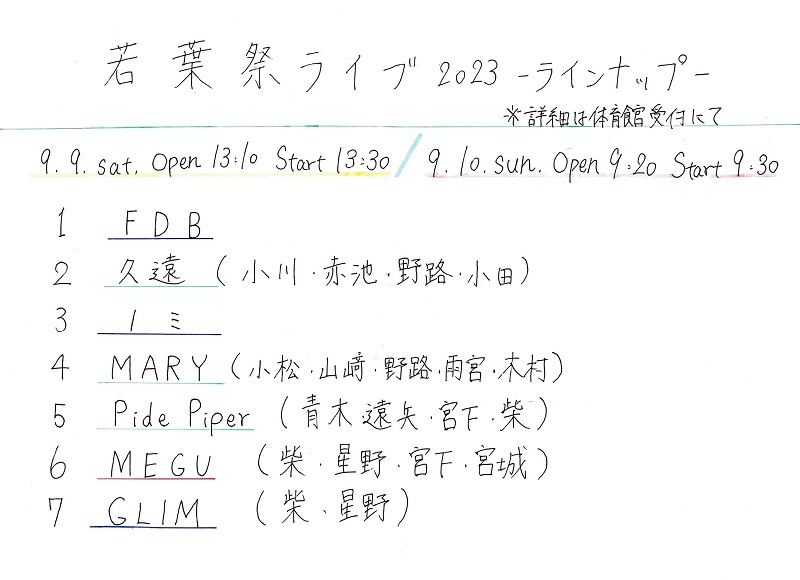 若葉祭ライブ 2023 -ラインナップ-
※詳細は体育館受付にて
9.9. sat. Open 13:10 Start 13:30 / 9.10. sun. Open 9:20 Start 9:30
1 FDB
2 久遠 (小川・赤池・野路・小田)
3 1ミ
4 MARY (小松・山﨑・野路・雨宮・木村)
5 Pide Piper (青木遠矢・宮下・柴)
6 MEGU (柴・星野・宮下・宮城)
7 GLIM (柴・星野)